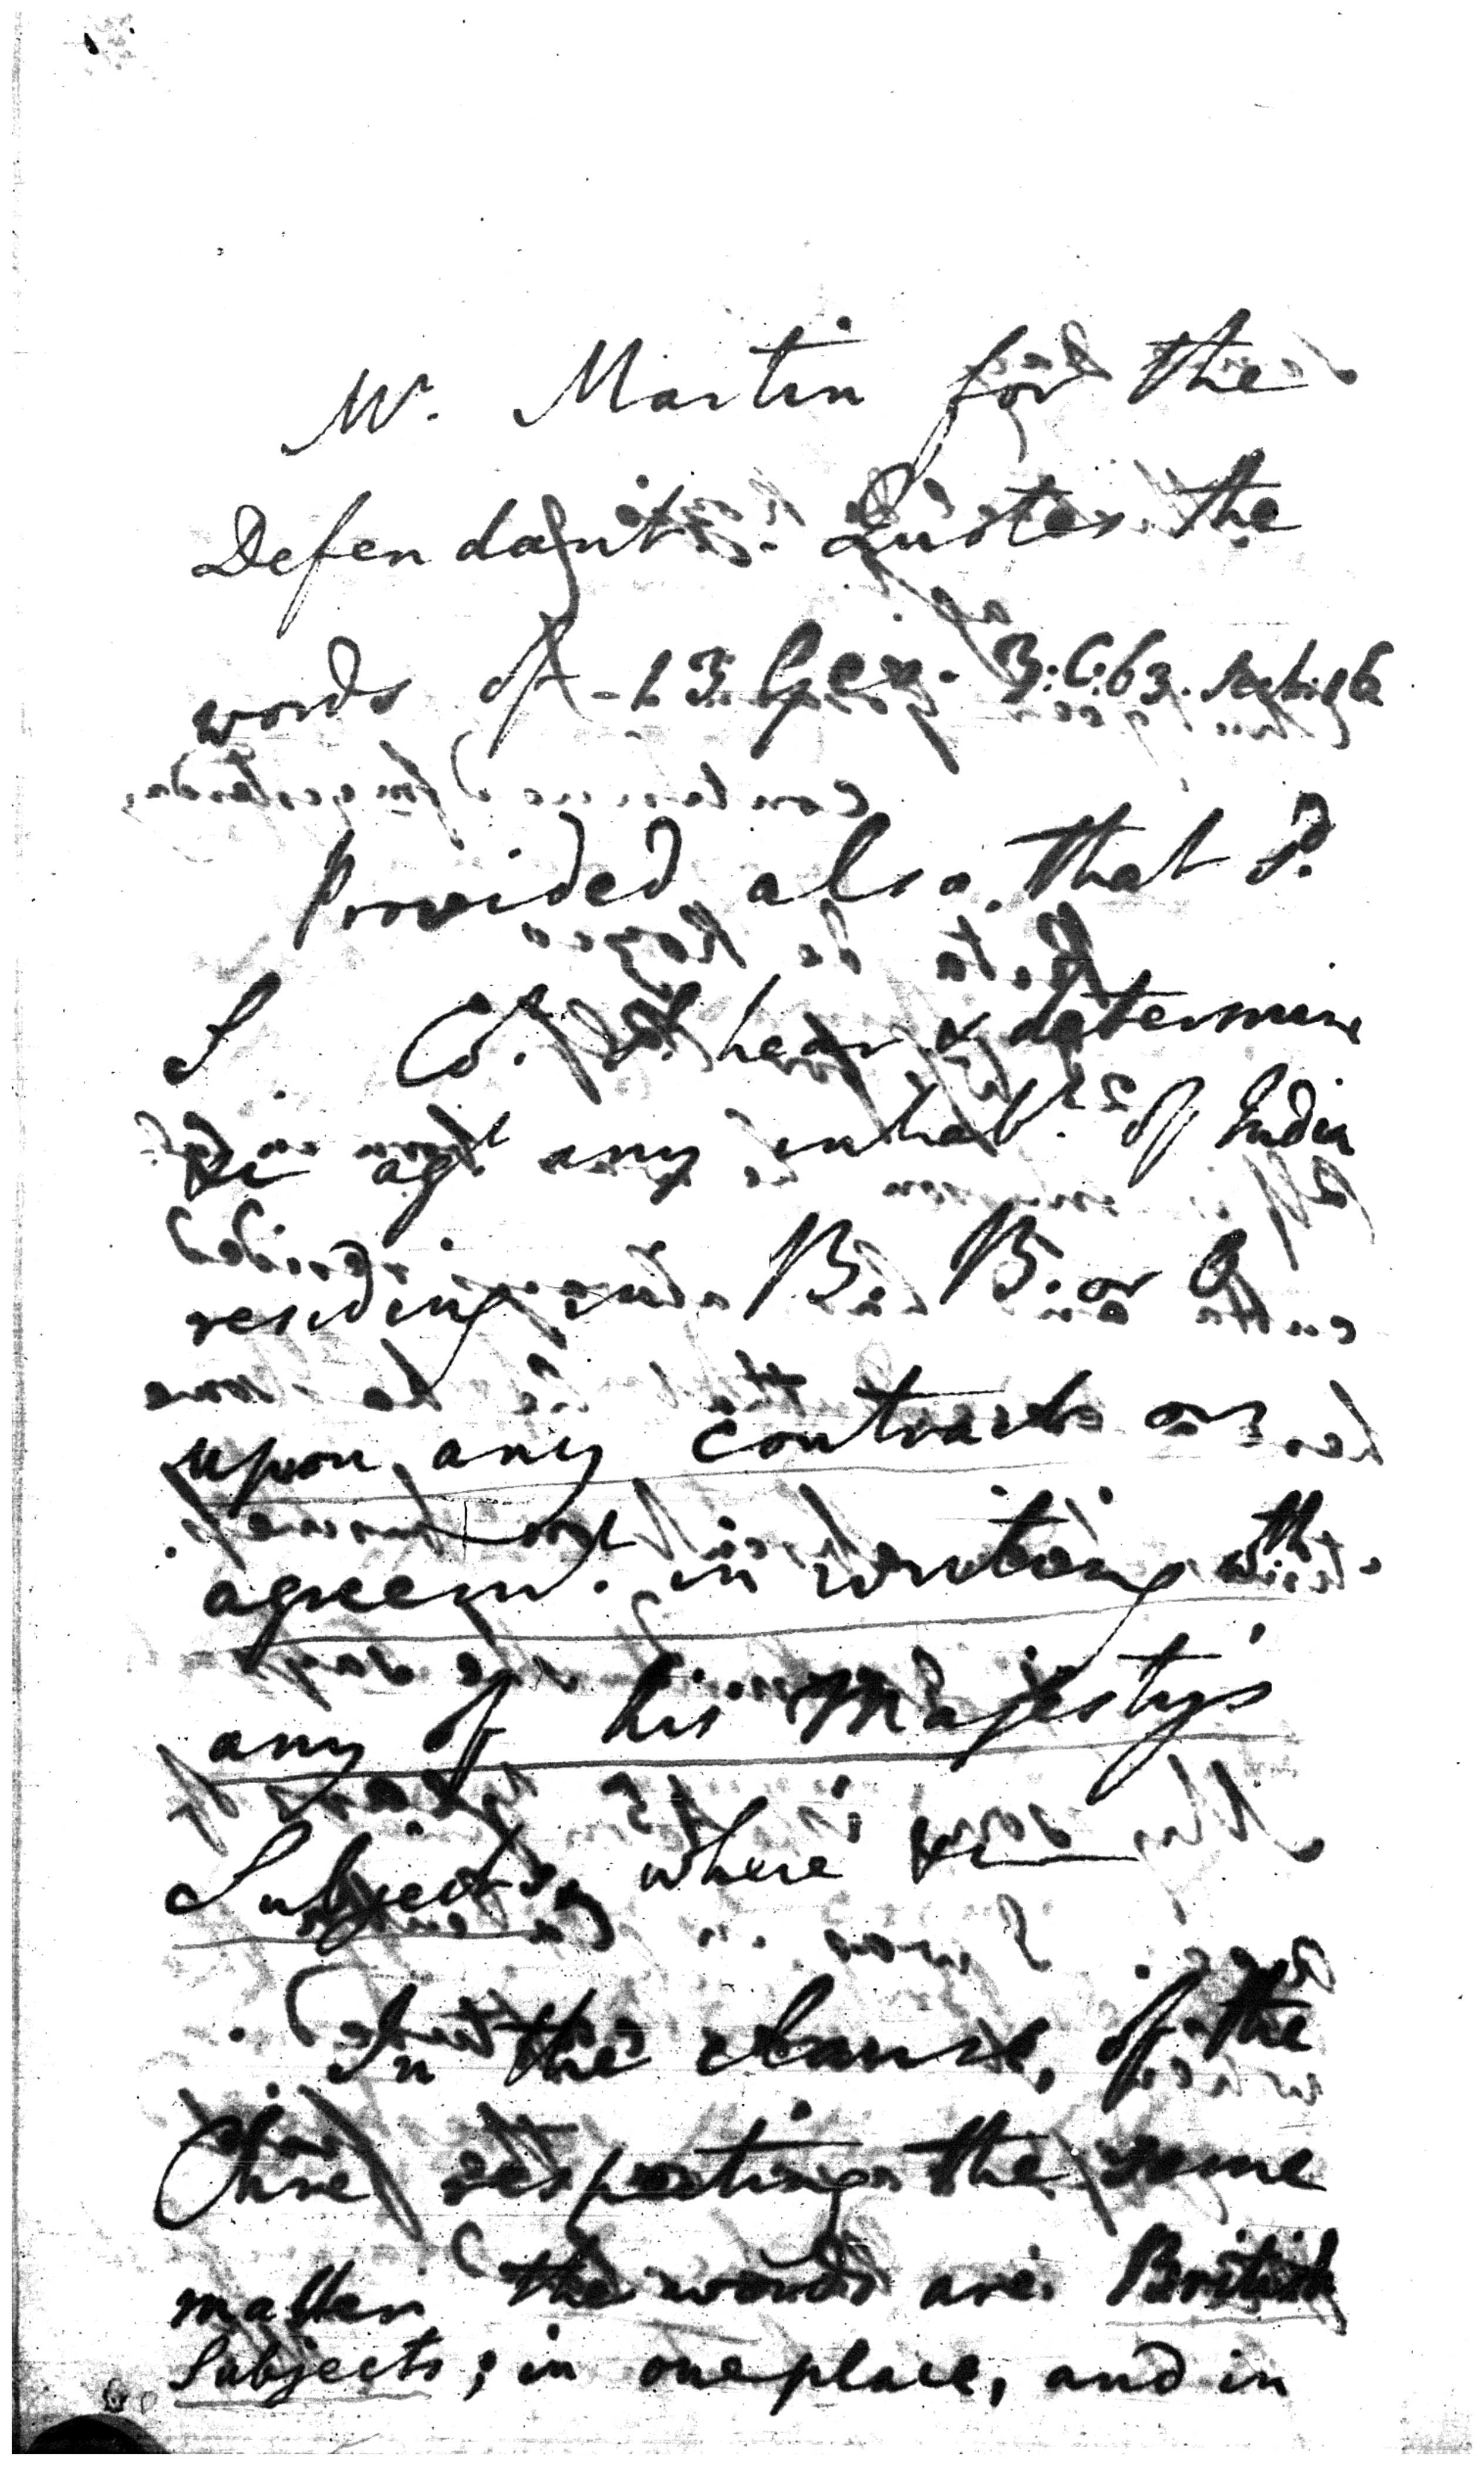 Mr. Martin for the
Defendant. Quotes the
words of 13 Geo. 3. C. 63. Sect. 16
Provided also that sd.
S. Ct. hear & determine
agt any inhabts of India
residing in B. B. or O
upon any contract or
agreemt. in writing with
any of his Majesty's
Subjects, where &c
In the clause, of the
Chre respecting the same
matter the words are British
Subjects; in one place, and in